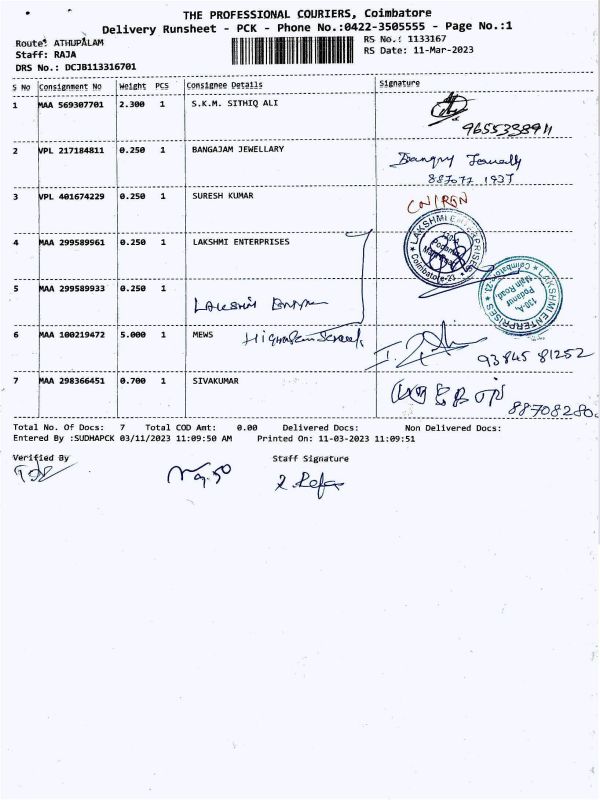 THE PROFESSIONAL COURIERS, Coimbatore
Delivery Runsheet - PCK - Phone No.:0422-3505555 - Page No.:1
Route: ATHUPALAM
RS No.: 1133167
Staff: RAJA
RS Date: 11-Mar-2023
DRS No.: DCJB113316701
S No Consignment No Weight PCS Consignee Details Signature
1 MAA 569307701 2.300 1 S.K.M. SITHIQ ALI
9655338911
2 VPL 217184811 0.250 1 BANGAJAM JEWELLARY
887077 1937
3 VPL 401674229 0.250 1 SURESH KUMAR
LAKSHMI ENTERPRISES
110-A
Podanur
Main Road
Coimbatore-23
4 MAA 299589961 0.250 1 LAKSHMI ENTERPRISES
5 MAA 299589933 0.250 1
LAKSHMI ENTERPRISES
130-A,
Podanur
Main Road
Coimbatore-23
6 MAA 100219472 5.000 1 MEWS
93845 81252
7 MAA 298366451 0.700 1 SIVAKUMAR
88708280
Total No. Of Docs: 7 Total COD Amt: 0.00 Delivered Docs: Non Delivered Docs:
Entered By :SUDHAPCK 03/11/2023 11:09:50 AM Printed On: 11-03-2023 11:09:51
Verified By
Staff Signature